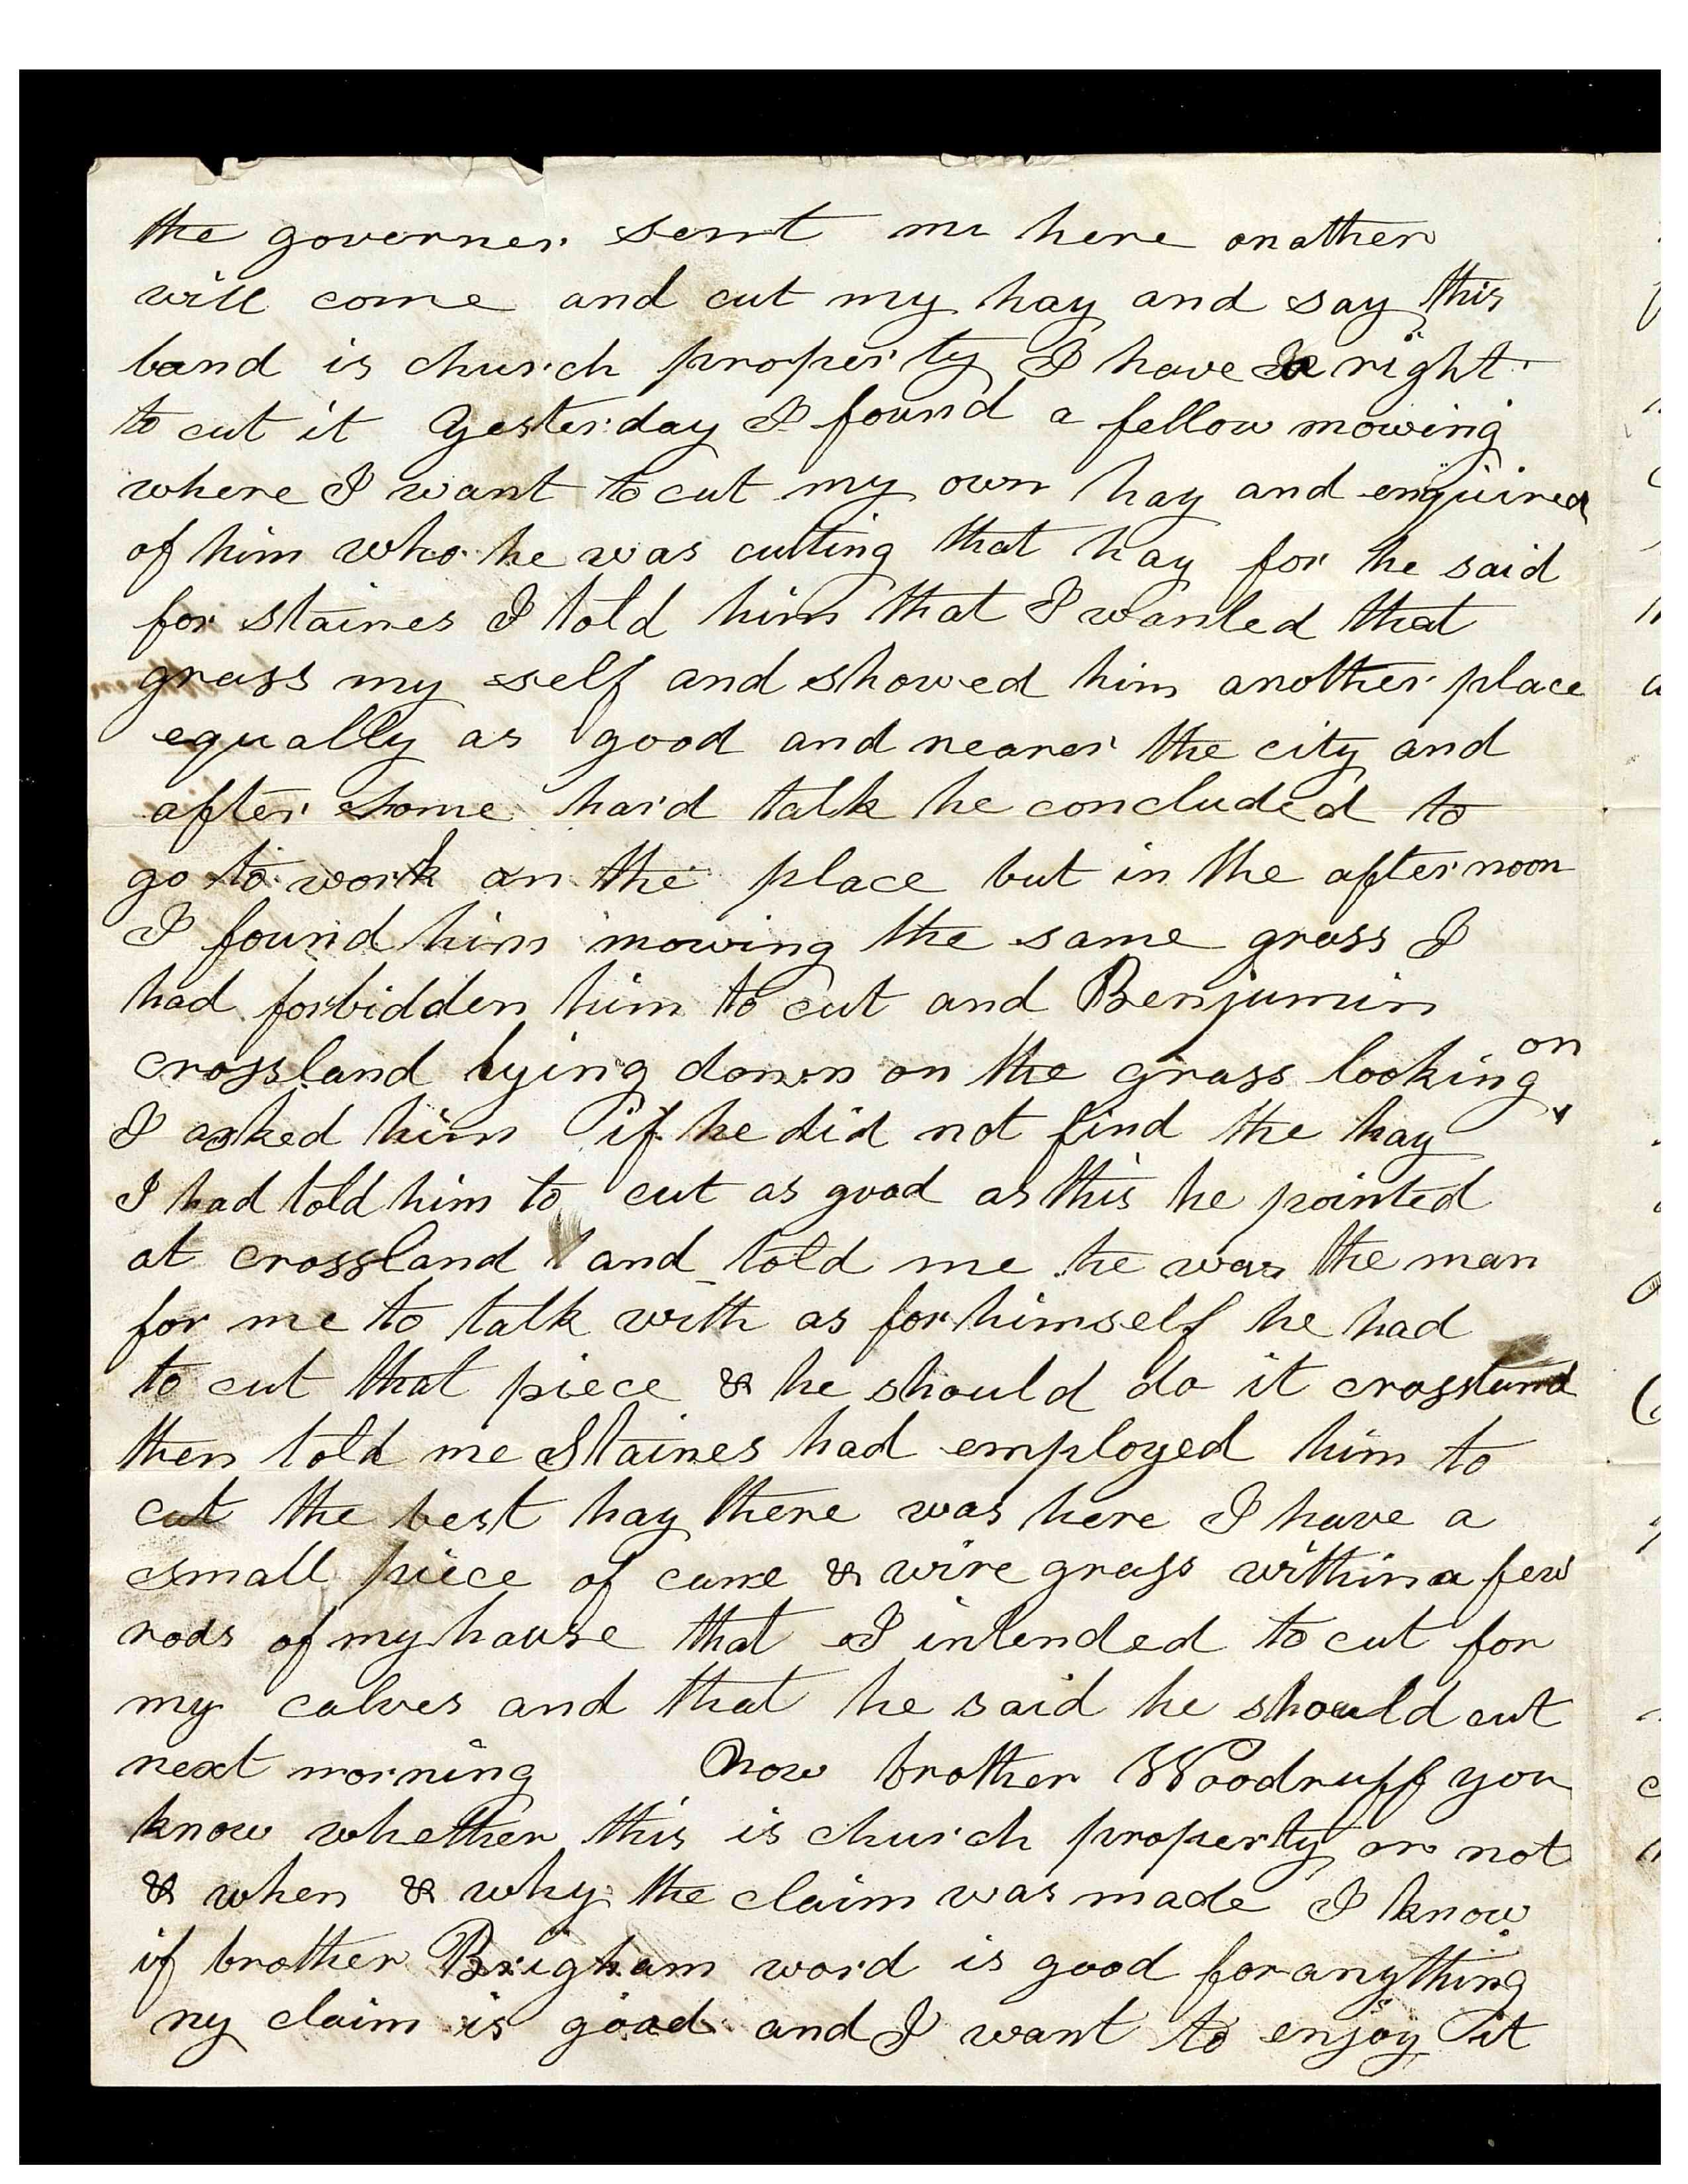 the governer sent me here another
will come and cut my hay and say this
land is church property I have a right
to cut it Yesterday I found a fellow mowing
where I want to cut my own hay and enquired
of him who he was cutting that hay for he said
for staines I told him that I wanted that
grass my self and showed him another place
equally as good and nearer the city and
after some hard talk he concluded to
go to work on the place but in the afternoon
I found him mowing the same grass I
had forbidden him to cut and Benjumin
crossland lying down on the grass looking on
I asked him if he did not find the hay
I had told him to cut as good as this he pointed
at crossland and told me he was the man
for me to talk with as for himself he had
to cut that piece & he should do it crossland
then told me Staines had employed him to
cut the best hay there was here I have a
small piece of cane & wire grass within a few
rods of my house that I intended to cut for
my calves and that he said he should cut
next morning Now brother Woodruff you
know whether this is church property or not
& when & why the claim was made I know
if brother Brigham word is good for anything
my claim is good and I want to enjoy it